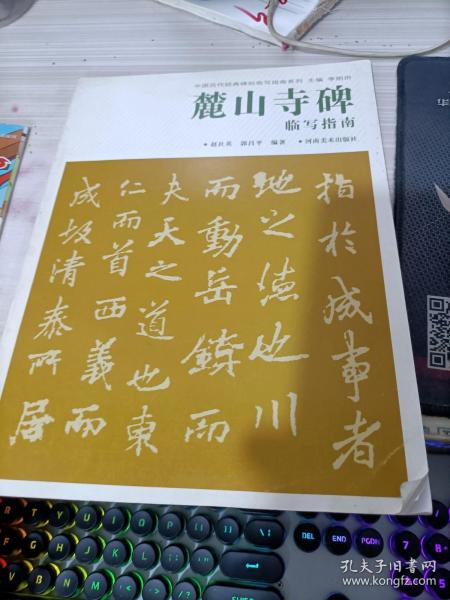 中国古代经典碑帖临写指南系列 主编
麓山寺碑
临写指南
•赵社英 郭昌平 编著 •河南美术出版社
指於成事者
地之德也川
而動岳鎮而
夫天之道也東
仁而首西義而
成故清泰所居
华
DEL END PGDN 7 8
孔夫子旧书网
www.kongfz.com